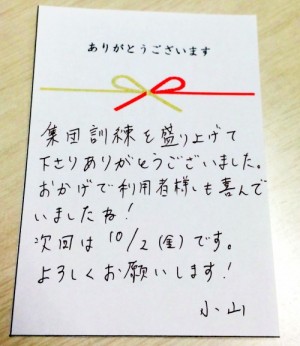 ありがとうございます
集団訓練を盛り上げて
下さりありがとうございました。
おかげで利用者様も喜んで
いましたね！
次回は10/2(金)です。
よろしくお願いします！
小山